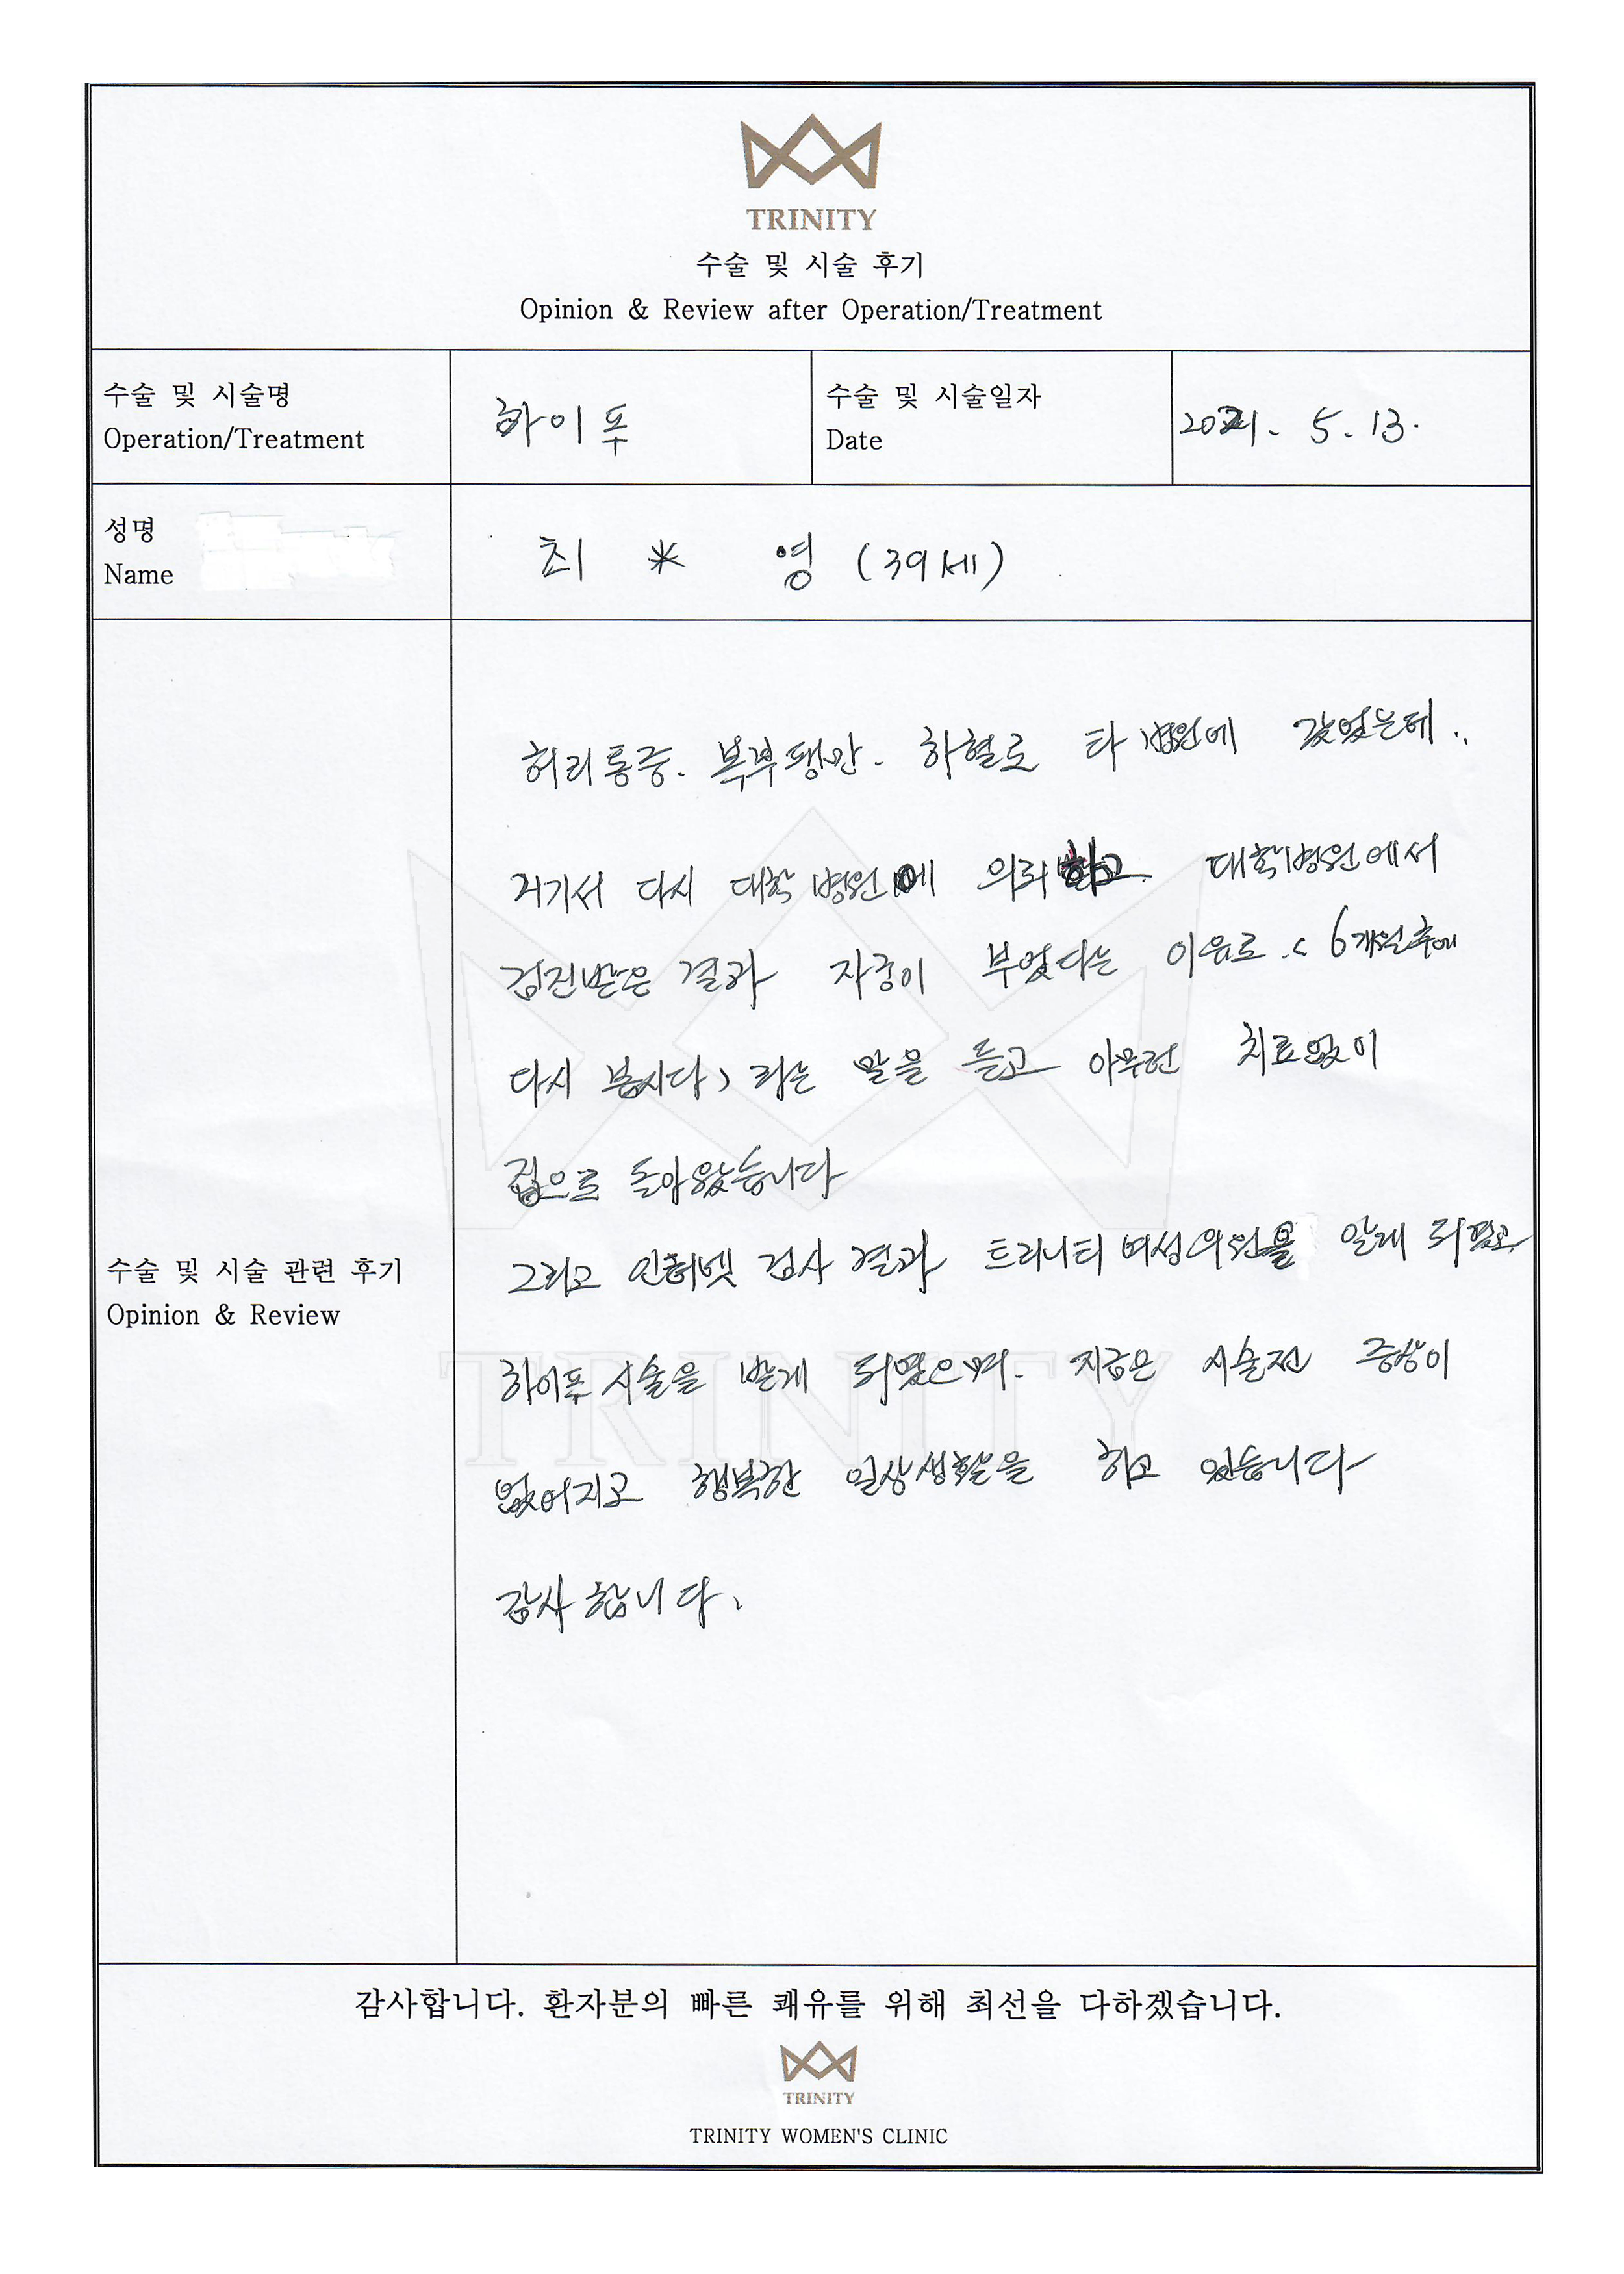 TRINITY
수술 및 시술 후기
Opinion & Review after Operation/Treatment
수술 및 시술명
Operation/Treatment
하이푸
수술 및 시술일자
Date
2021. 5. 13.
성명
Name
최 * 영 (39세)
허리통증. 복부팽만. 하혈로 타 병원에 갔었는데..
거기서 다시 대학병원에 의뢰하고. 대학병원에서
검진받은 결과 자궁이 부었다는 이유로 < 6개월후에
다시 봅시다> 라는 말을 듣고 아무런 치료없이
집으로 돌아왔습니다
그리고 인터넷 검사 결과 트리니티여성의원을 알게 되었고
하이푸 시술을 받게 되었으며. 지금은 시술전 증상이
없어지고 행복한 일상생활을 하고 있습니다
감사합니다.
수술 및 시술 관련 후기
Opinion & Review
TRINITY
감사합니다. 환자분의 빠른 쾌유를 위해 최선을 다하겠습니다.
TRINITY
TRINITY WOMEN'S CLINIC